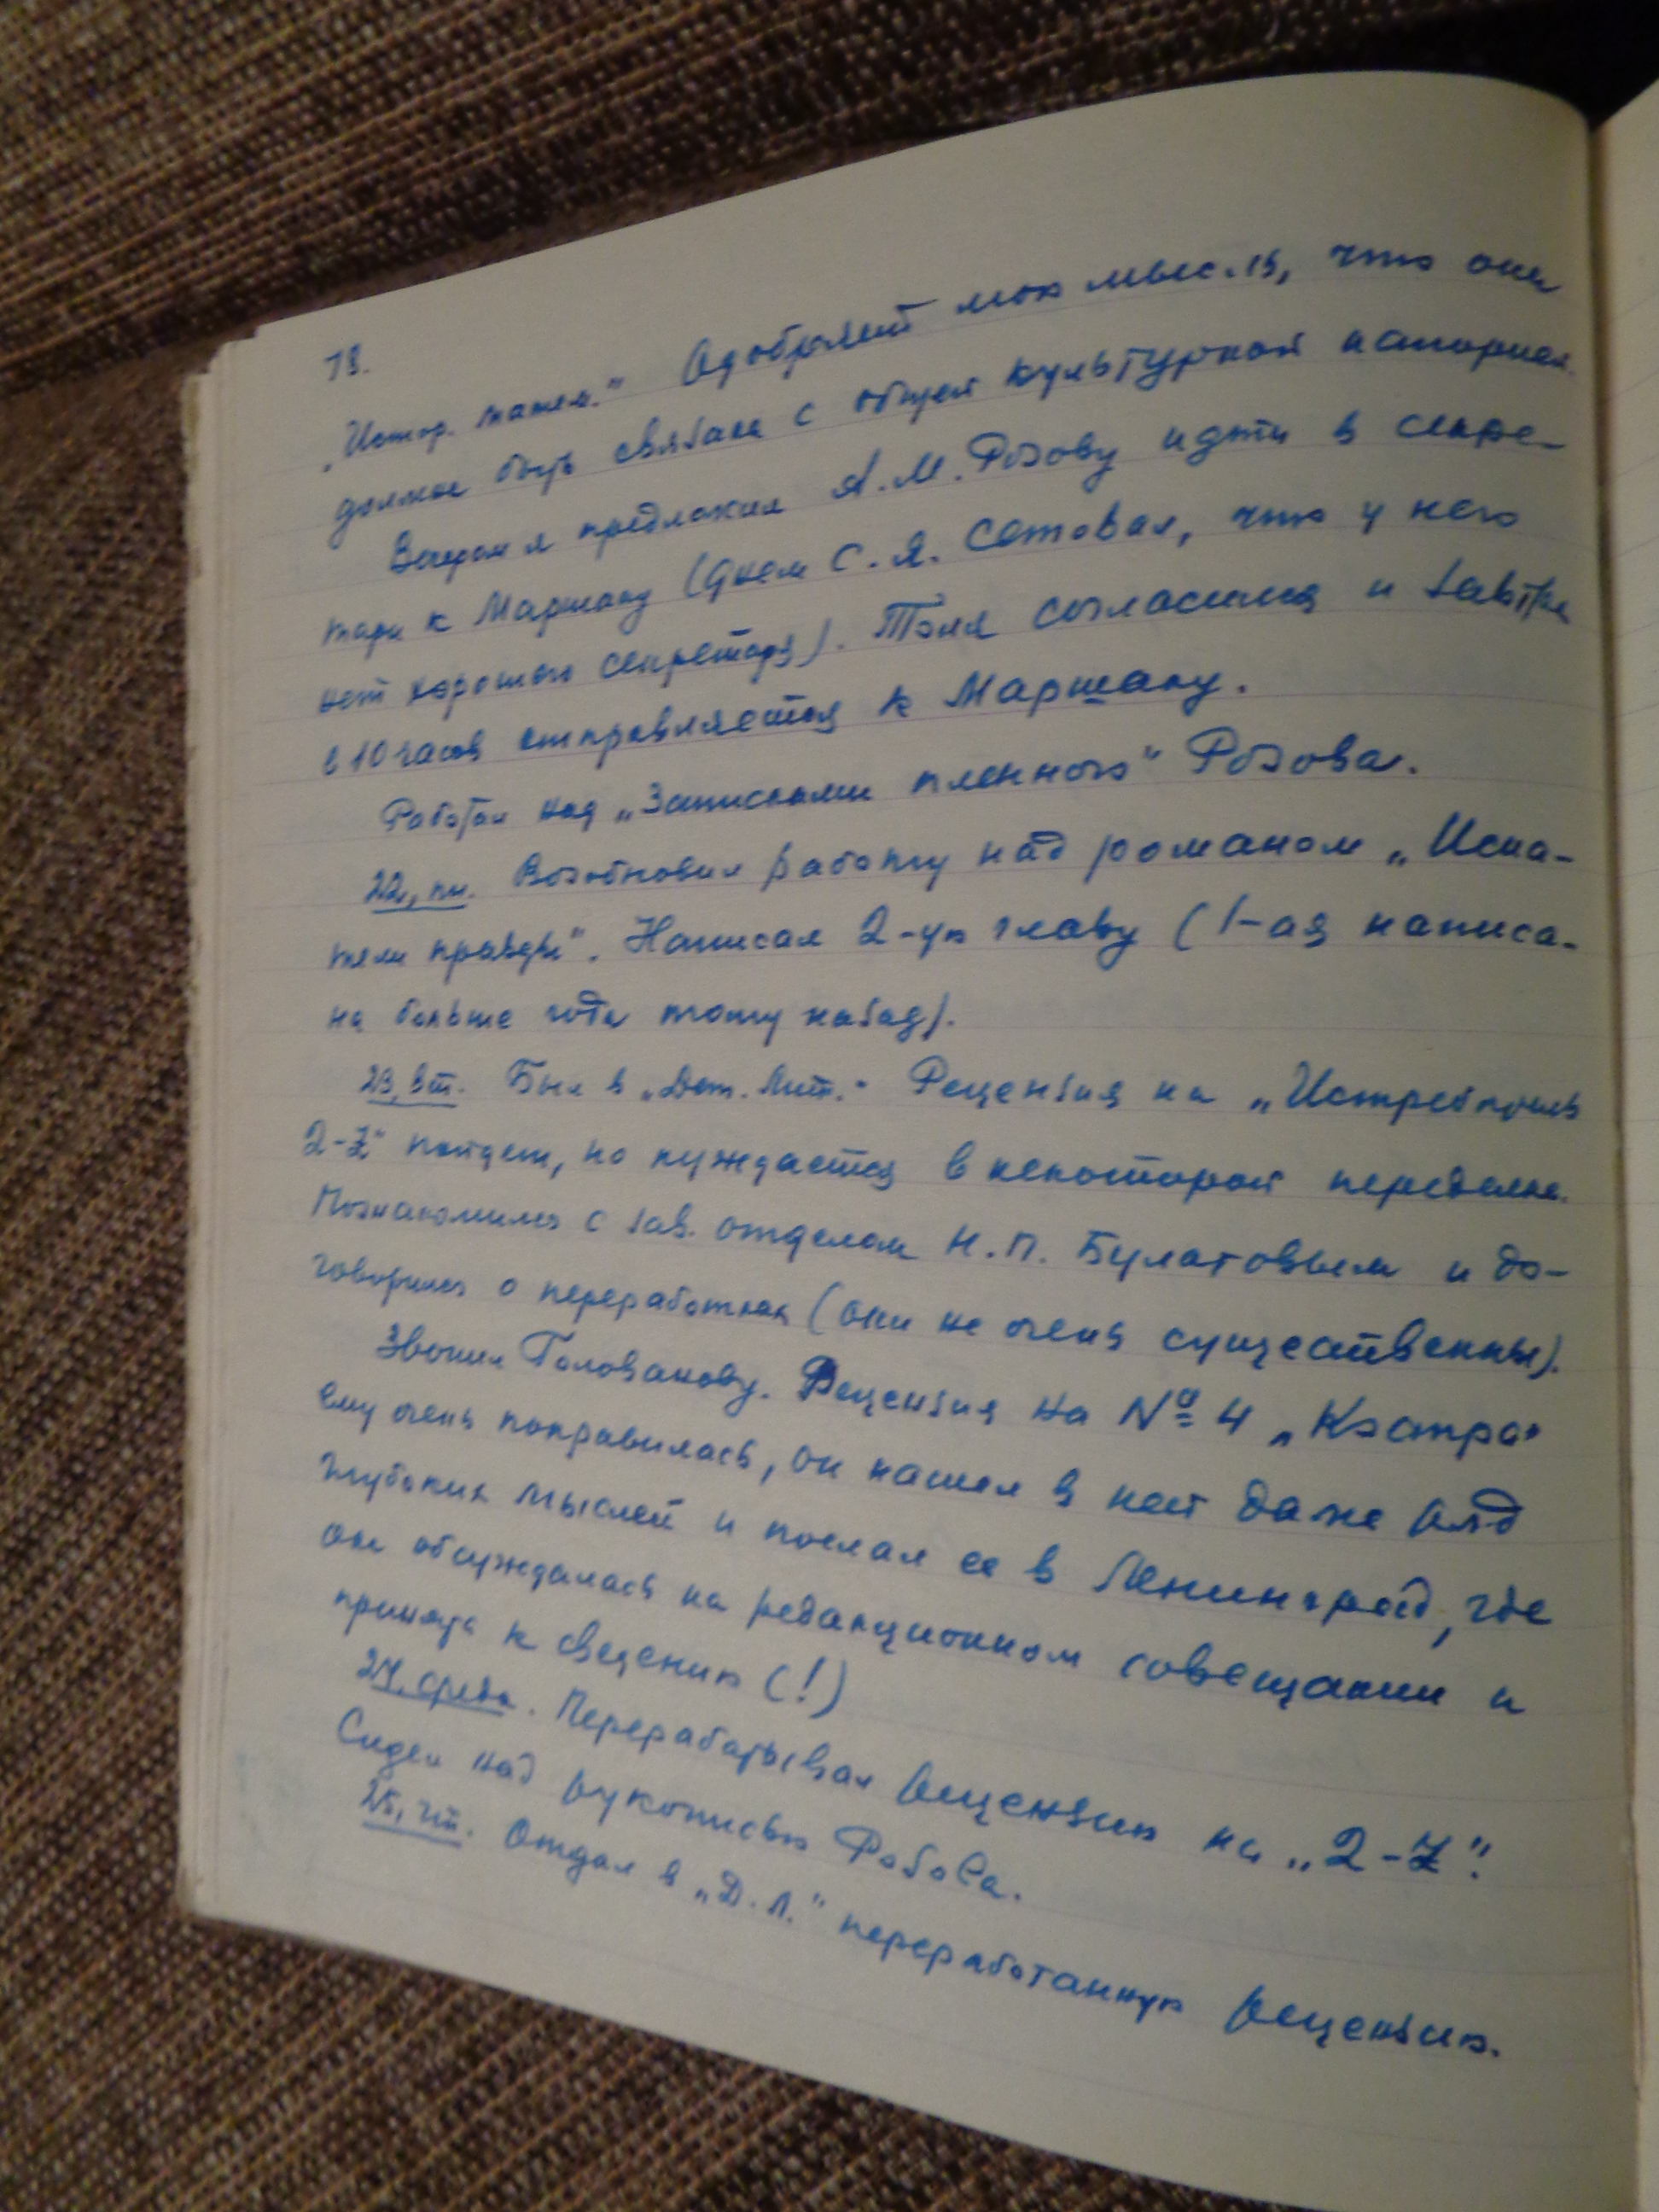 18.
„Истор. матем.“ Одобряет мою мысль, что она
должна быть связана с общей культурной историей.
Вечером я предложил А. М. Розову идти в секре-
тари к Маршаку (днем С. Я. сетовал, что у него
нет хорошего секретаря). Толя согласился и завтра
в 10 часов отправляется к Маршаку.
Работал над „Записками пленного“ Розова.
22, пн. Возобновил работу над романом „Иска-
тели правды“. Написал 2-ую главу (1-ая написа-
на больше года тому назад).
23, вт. Был в „Дет. Лит.“ Рецензия на „Истребитель
2-Z“ пойдет, но нуждается в некоторой переделке.
Познакомился с зав. отделом Н. П. Булатовым и до-
говорился о переработках (они не очень существенны).
Звонил Голованову. Рецензия на № 4 „Костра“
ему очень понравилась, он нашел в ней даже ряд
глубоких мыслей и послал ее в Ленинград, где
она обсуждалась на редакционном совещании и
принята к сведению (!)
24, среда. Перерабатывал рецензию на „2-Z“.
Сидел над рукописью Розова.
25, чт. Отдал в „Д. Л.“ переработанную рецензию.